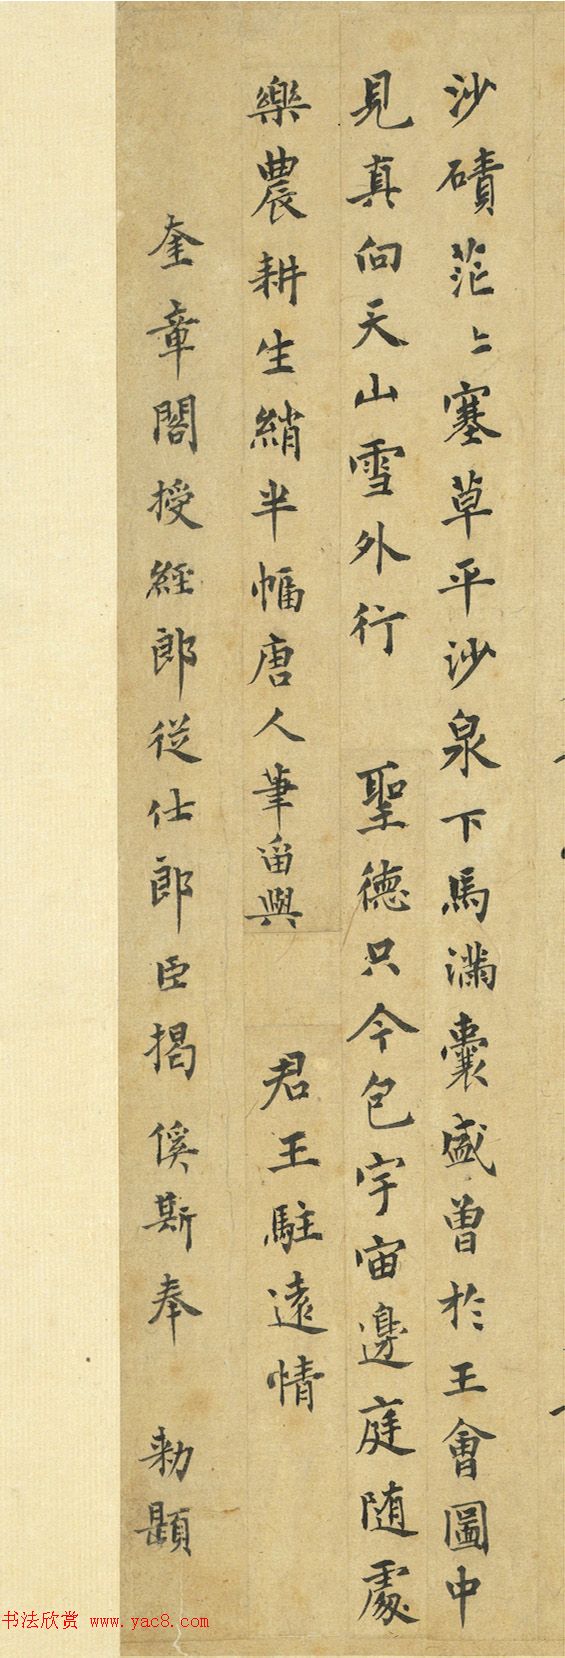 沙磧茫〻塞草平沙泉下馬滿囊盛曾於王會圖中
見真向天山雪外行 聖德只今包宇宙邊庭隨處
樂農耕生綃半幅唐人筆畱與 君王駐遠情
奎章閣授經郎從仕郎臣揭傒斯奉 勑題
书法欣赏 www.yac8.com